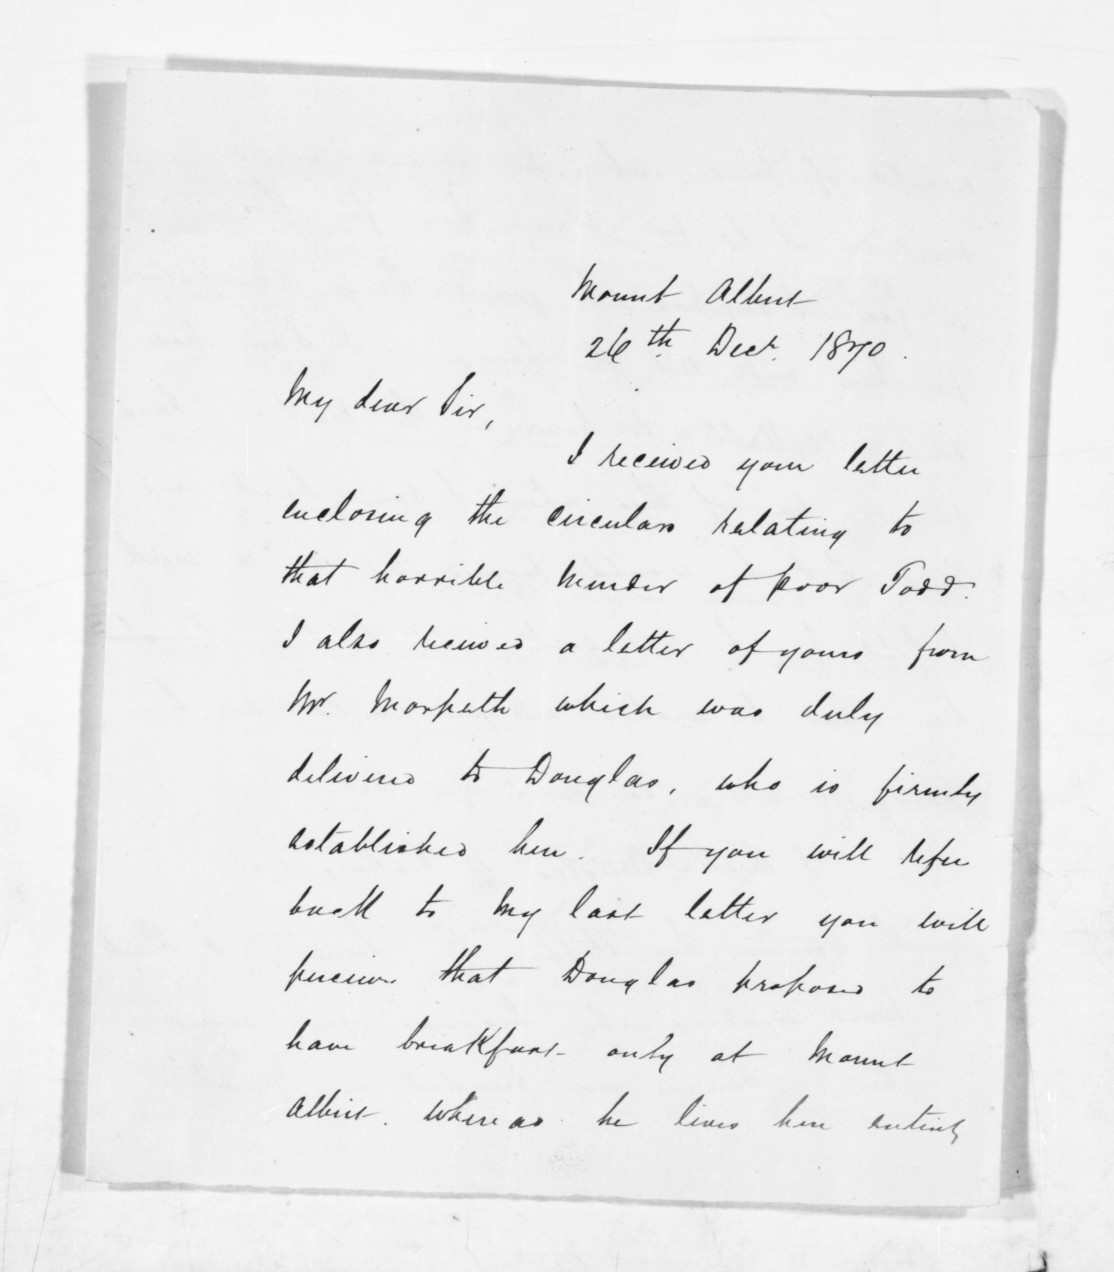 Mount Albert
26th Decr. 1870.
My dear Sir,
I received your letter
enclosing the circulars relating to
that horrible murder of poor Todd.
I also received a letter of yours from
Mr. Morpeth which was duly
delivered to Douglas, who is firmly
established here. If you will refer
back to my last letter you will
perceive that Douglas proposed to
have breakfast only at Mount
Albert. whereas he lives here entirely